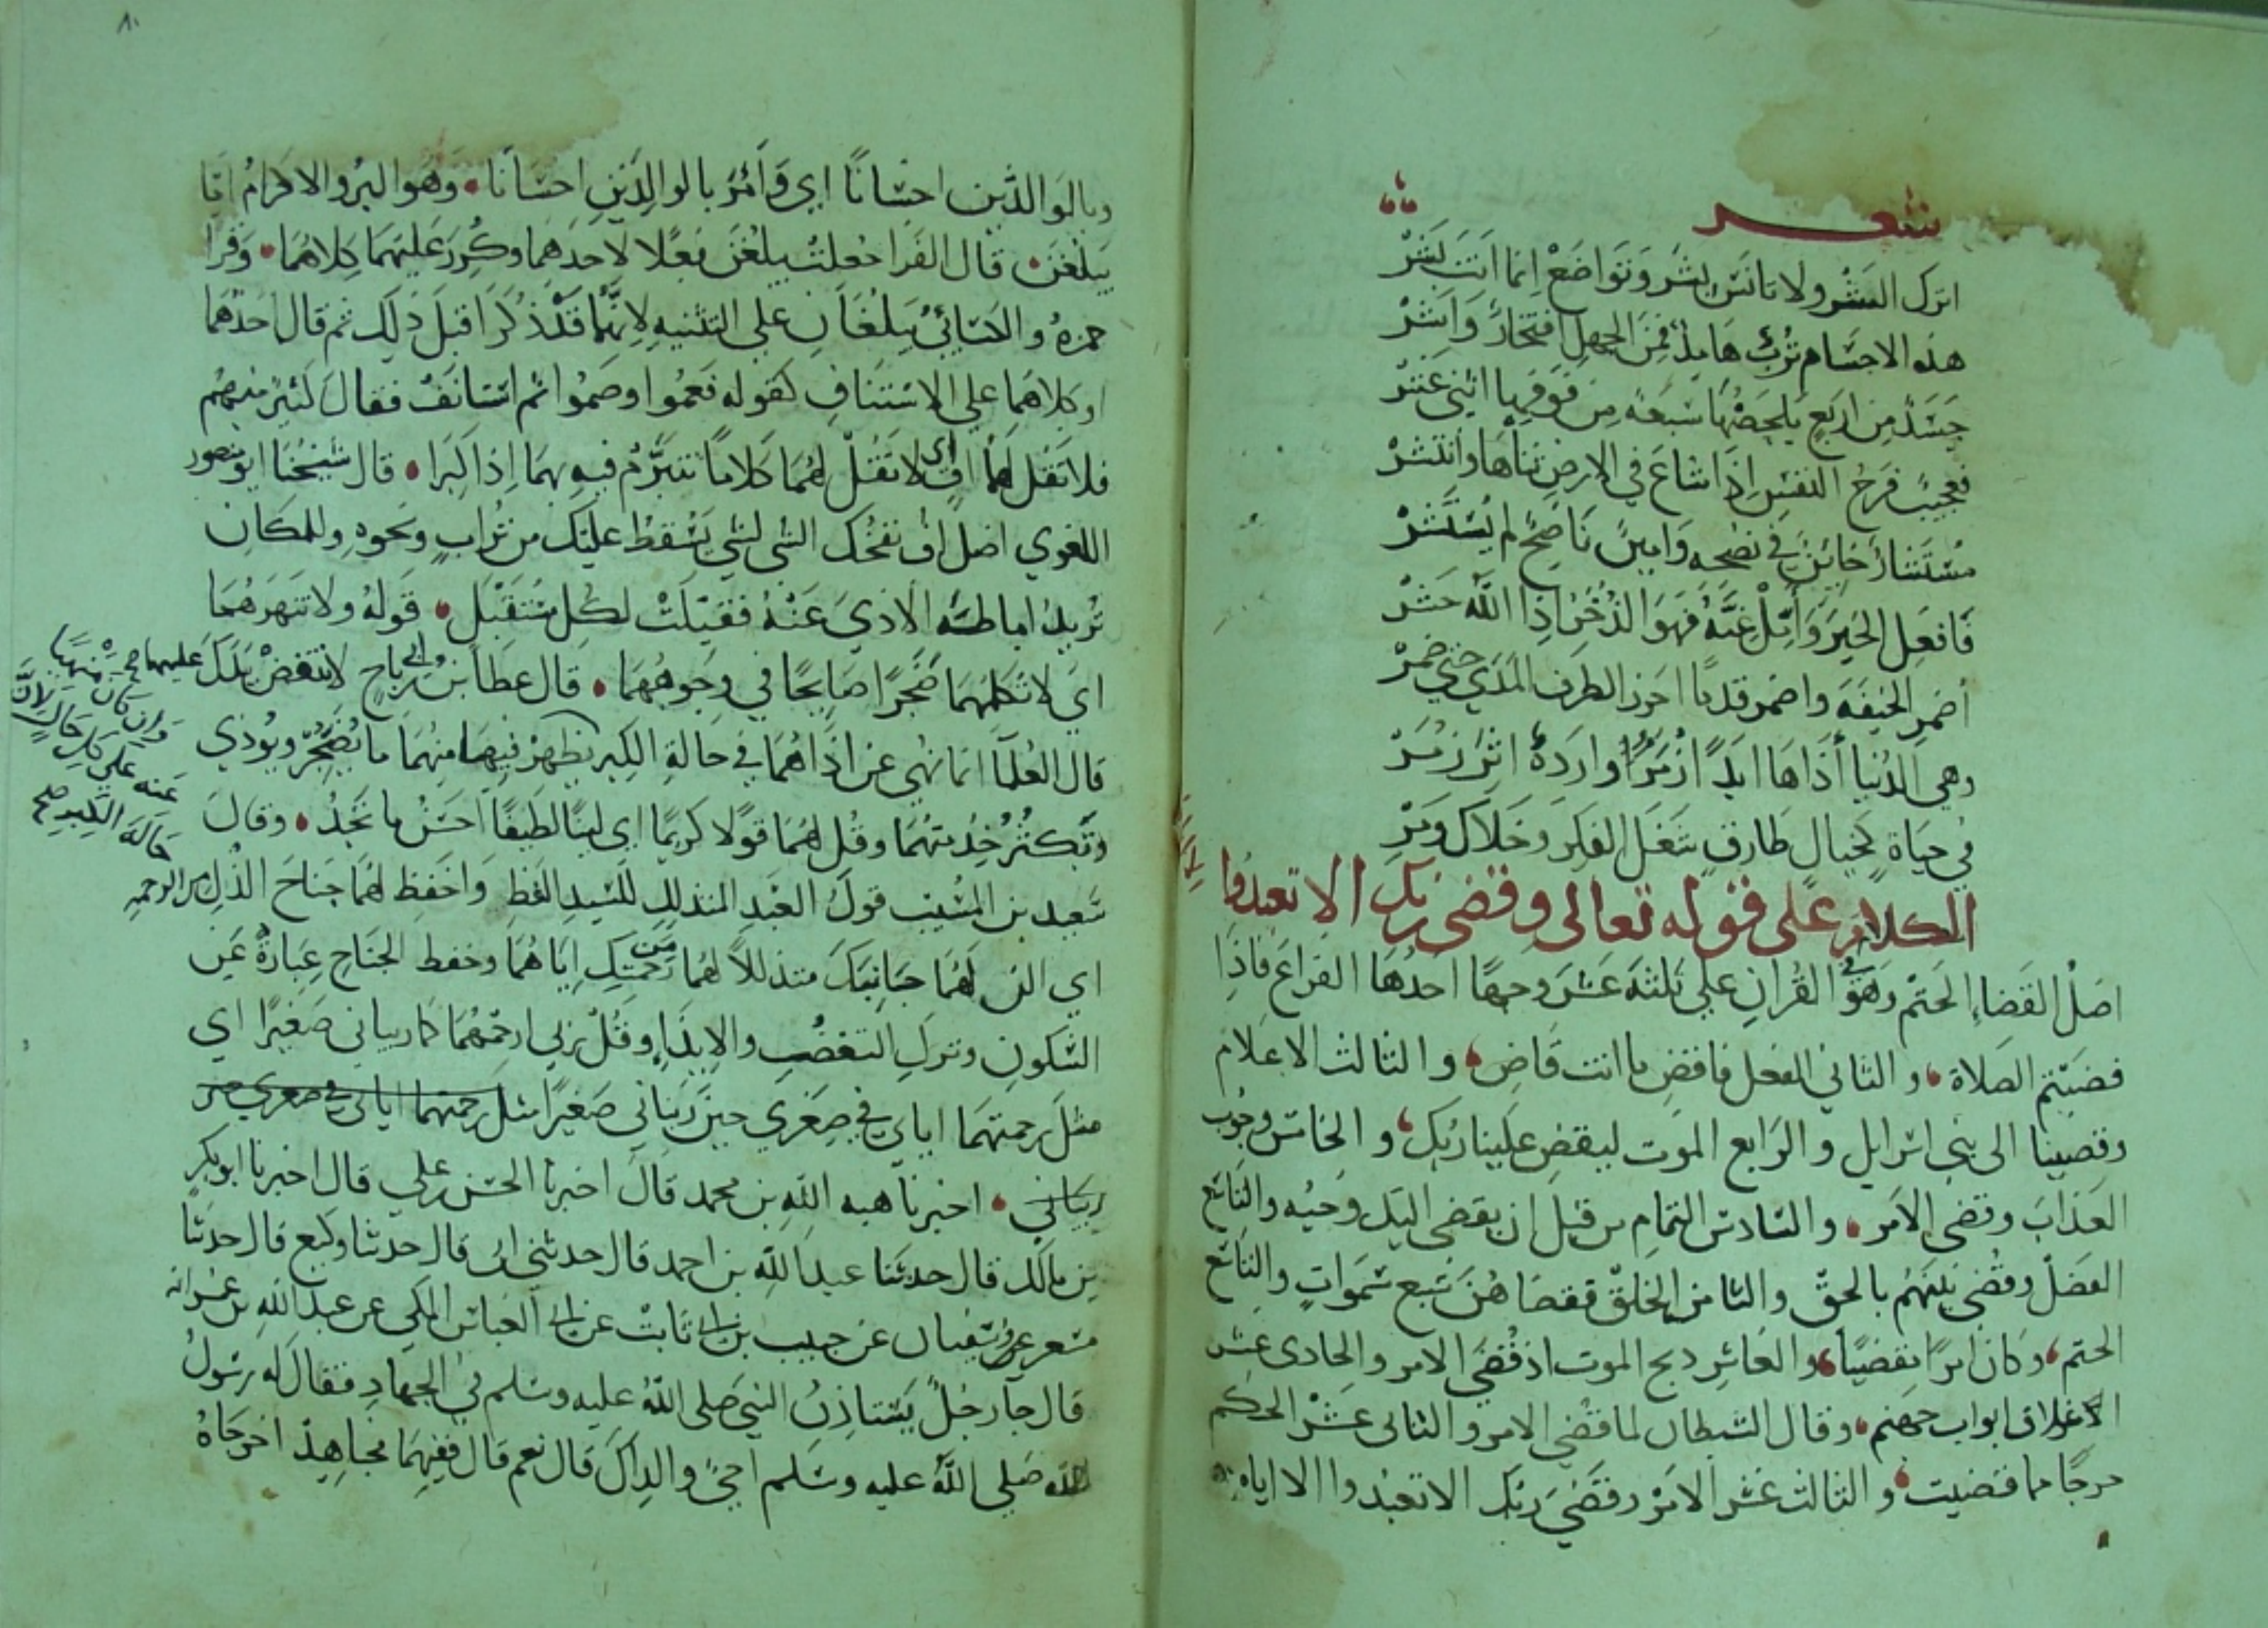 شعر
اترك الشر ولا تانس بشر وتواضع انما انت بشر
هذه الاجسام ترب هامد فمن الجهل افتخار واشر
جسد من اربع يلحظها سبعة من فوقها اثني عشر
فعجيب فرح النفس اذا شاع في الارض ثناها وانتشر
مستشار خاين في نصحه وامين ناصح لم يستشر
فافعل الخير وامل غبه فهو الذخر اذا الله حشر
اضمر الخيفة واضمر قدما احرز الطرف المدي حتي ضمر
وهي الدنيا اذاها ابدا زمرا واردة اثر زمر
في حياة كخيال طارق شغل الفكر وخلاك ومر
الكلام على قوله تعالى وقضى ربك الا تعبدوا
اصل القضاء الحتم وهو في القران علي ثلثة عشر وجها احدها الفراغ فاذا
قضيتم الصلاة والثاني الفعل فاقض ما انت قاض والثالث الاعلام
وقضينا الى بني اسرايل والرابع الموت ليقض علينا ربك والخامس وجوب
العذاب وقضي الامر والسادس التمام من قبل ان يقضي اليك وحيه والسابع
الفصل وقضي بينهم بالحق والثامن الخلق فقضاهن سبع سموات والتاسع
الحتم وكان امرا مقضيا والعاشر ذبح الموت اذ قضي الامر والحادي عشر
الاغلاق ابواب جهنم وقال الشيطان لما قضي الامر والثاني عشر الحكم
حرجا مما قضيت والثالث عشر الامر وقضي ربك الا تعبدوا الا اياه
وبالوالدين احسانا اي وامر بالوالدين احسانا وهو البر والاكرام اما
يبلغن قال الفرا جعلت يبلغن فعلا لاحدهما وكرر عليهما كلاهما وقرا
حمزة والكسائي يبلغان علي التثنيه لانهما قد ذكرا قبل ذلك ثم قال احدهما
او كلاهما علي الاستئناف كقوله فعموا وصموا ثم استانف فقال كثير منهم
فلا تقل لهما اف اي لا تقل لهما كلاما تتبرم فيه بهما اذا كبرا قال شيخنا ابو منصور
اللغوي اصل اف نفخك الشي لشي يسقط عليك من تراب ونحوه وللمكان
تريد اماطة الاذي عنه فقيلت لكل مستثقل قوله ولا تنهرهما
اي لا تكلمهما ضجرا صايحا في وجوههما قال عطا بن ابي رباح لا تنفض يدك عليهما
قال العلما انما نهي عن اذاهما في حالة الكبر يظهر فيها منهما ما يضجر ويوذي
وتكثر خدمتهما وقل لهما قولا كريما اي لينا لطيفا احسن ما تجد وقال
سعيد بن المسيب قول العبد المذنب للسيد الفظ واخفض لهما جناح الذل من الرحمه
اي الن لهما جانبك متذللا لهما من رحمتك اياهما وخفض الجناح عبارة عن
السكون وترك التغضب والايذا وقل رب ارحمهما كما ربياني صغيرا اي
مثل رحمتهما اياي في صغري حين ربياني صغيرا مثل رحمتهما اياي في صغري حين
ربياني اخبرنا هبه الله بن محمد قال اخبرنا الحسن بن علي قال اخبرنا ابو بكر
بن مالك قال حدثنا عبد الله بن احمد قال حدثني ابي قال حدثنا وكيع قال حدثنا
مسعر وسفيان عن حبيب بن ابي ثابت عن ابي العباس المكي عن عبد الله بن عمر انه
قال جا رجل يستاذن النبي صلى الله عليه وسلم في الجهاد فقال له رسول
الله صلى الله عليه وسلم احي والداك قال نعم قال ففيهما فجاهد اخرجاه
وان كان منهيا
عنه علي كل حال لان
حالة الكبر صح